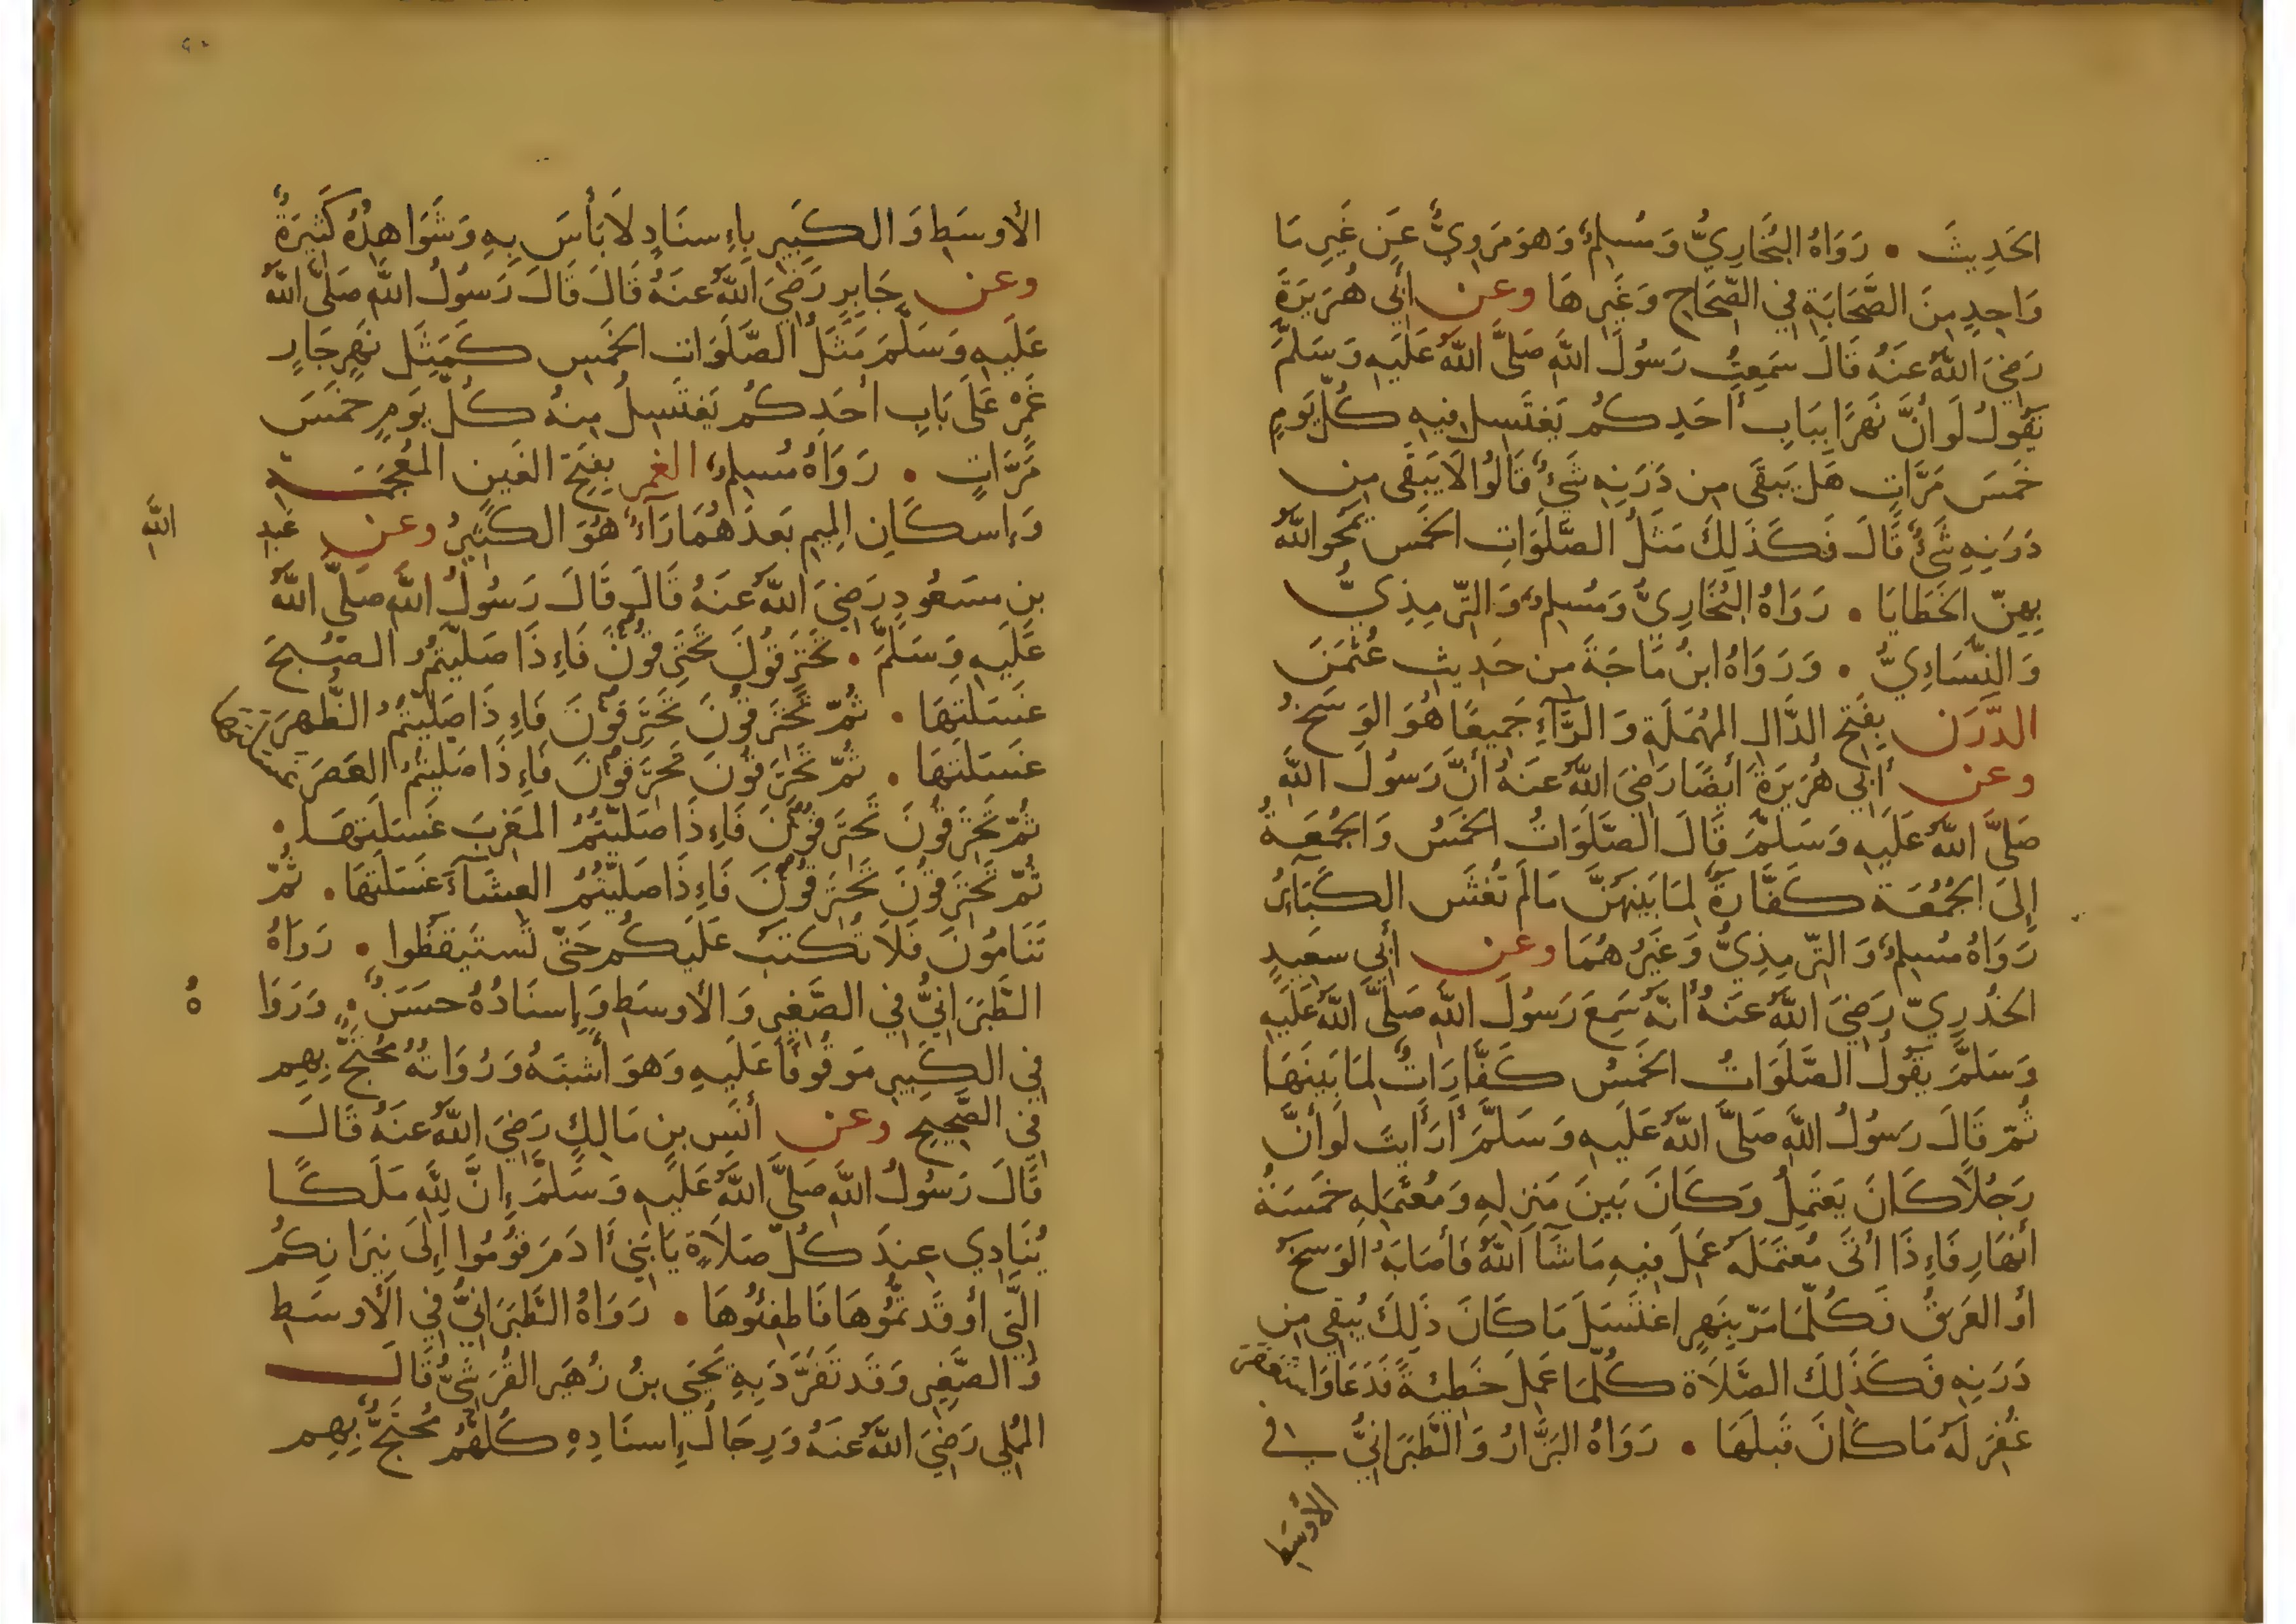 الحَدِيثَ • رَوَاهُ البُخَارِيُّ وَمُسْلِمٌ وَهوَ مَروِيٌّ عَن غَيرِ مَا
وَاحِدٍ مِنَ الصَّحَابَةِ فِي الصِّحَاحِ وَغَيرِهَا وعن أَبِي هُرَيرَةَ
رَضِيَ اللَّهُ عَنهُ قَالَ سَمِعتُ رَسُولَ اللَّهِ صَلَّى اللَّهُ عَلَيهِ وَسَلَّمَ
يَقُولُ لَو أَنَّ نَهرًا بِبَابِ أَحَدِكُم يَغتَسِل فِيهِ كُلَّ يَومٍ
خَمسَ مَرَّاتٍ هَل يَبقَى مِن دَرَنِهِ شَيءٌ قَالُوا لَا يَبقَى مِن
دَرَنِهِ شَيءٌ قَالَ فَكَذَلِكَ مَثَلُ الصَّلَوَاتِ الخَمسِ يَمحُو اللَّهُ
بِهِنّ الخَطَايَا • رَوَاهُ البُخَارِيُّ وَمُسلِمٌ وَالتِّرمِذِيُّ
وَالنَّسَاءِيُّ • وَرَوَاهُ ابنُ مَاجَةَ مِن حَدِيثِ عُثمَنَ
الدَّرَن بِفَتحِ الدَّالِ المُهمَلَةِ وَالرَّآءِ جَمِيعًا هُوَ الوَسَخُ
وعن أَبِي هُرَيرَةَ أَيضًا رَضِيَ اللَّهُ عَنهُ أَنَّ رَسُولَ اللَّهِ
صَلَّى اللَّهُ عَلَيهِ وَسَلَّمَ قَالَ الصَّلَوَاتُ الخَمسُ وَالجُمُعَةُ
إِلَى الجُمُعَةِ كَفَّارَةٌ لِمَا بَينَهُنَّ مَا لَم تُغشَ الكَبَآئِرُ
رَوَاهُ مُسلِمٌ وَالتِّرمِذِيُّ وَغَيرُهُمَا وعن أَبِي سَعِيدٍ
الخُدرِيِّ رَضِيَ اللَّهُ عَنهُ أَنَّهُ سَمِعَ رَسُولَ اللَّهِ صَلَّى اللَّهُ عَلَيهِ
وَسَلَّمَ يَقُولُ الصَّلَوَاتُ الخَمسُ كَفَّارَاتٌ لِمَا بَينَهَا
ثُمّ قَالَ رَسُولُ اللَّهِ صَلَّى اللَّهُ عَلَيهِ وَسَلَّمَ أَرَأَيتَ لَو أَنَّ
رَجُلًا كَانَ يَعتَمِلُ وَكَانَ بَينَ مَنزِلِهِ وَمُعتَمَلِهِ خَمسَةُ
أَنهَارٍ فَإِذَا أَتَى مُعتَمَلَهُ عَمِلَ فِيهِ مَا شَآءَ اللَّهُ فَأَصَابَهُ الوَسَخُ
أَو العَرَقُ فَكُلَّمَا مَرّ بِنَهرٍ اغتَسَلَ مَا كَانَ ذَلِكَ يُبقِي مِن
دَرَنِهِ فَكَذَلِكَ الصَّلَاة كُلَّمَا عَمِلَ خَطِيئَةً فَدَعَا وَاستَغفَرَ
غُفِرَ لَهُ مَا كَانَ قَبلَهَا • رَوَاهُ البَزَّارُ وَالطَّبَرَانِيُّ فِي
الأَوسَطِ
الأَوسَطِ وَالكَبِيرِ بِإِسنَادٍ لَا بَأسَ بِهِ وَشَوَاهِدُهُ كَثِيرَةٌ
وعن جَابِرٍ رَضِيَ اللَّهُ عَنهُ قَالَ قَالَ رَسُولُ اللَّهِ صَلَّى اللَّهُ
عَلَيهِ وَسَلَّمَ مَثَلُ الصَّلَوَاتِ الخَمسِ كَمَثَلِ نَهرٍ جَارٍ
غَمْرٍ عَلَى بَابِ أَحَدِكُم يَغتَسِلُ مِنهُ كُلَّ يَومٍ خَمسَ
مَرَّاتٍ • رَوَاهُ مُسلِمٌ الغمر بِفَتحِ الغَينِ المُعجَمَةِ
وَإِسكَانِ المِيمِ بَعدَهُمَا رَآءٌ هُوَ الكَثِيرُ وعن عَبدِ
اللَّهِ
بنِ مَسعُودٍ رَضِيَ اللَّهُ عَنهُ قَالَ قَالَ رَسُولُ اللَّهِ صَلَّى اللَّهُ
عَلَيهِ وَسَلَّمَ • تَحتَرِقُونَ تَحتَرِقُونَ فَإِذَا صَلَّيتُمُ الصُّبحَ
غَسَلَتهَا • ثُمّ تَحتَرِقُونَ تَحتَرِقُونَ فَإِذَا صَلَّيتُمُ الظُّهرَ
غَسَلَتهَا • ثُمّ تَحتَرِقُونَ تَحتَرِقُونَ فَإِذَا صَلَّيتُمُ العَصرَ غسلتها
ثُمّ تَحتَرِقُونَ تَحتَرِقُونَ فَإِذَا صَلَّيتُمُ المَغرِبَ غَسَلَتهَا •
ثُمّ تَحتَرِقُونَ تَحتَرِقُونَ فَإِذَا صَلَّيتُمُ العِشَآءَ غَسَلَتهَا • ثُمّ
تَنَامُونَ فَلَا تُكتَبُ عَلَيكُم حَتَّى تَستَيقِظُوا • رَوَاهُ
الطَّبَرَانِيُّ فِي الصَّغِيرِ وَالأَوسَطِ وَإِسنَادُهُ حَسَنٌ • وَرَوَا
هُ
فِي الكَبِيرِ مَوقُوفًا عَلَيهِ وَهوَ أَشبَهُ وَرُوَاتُهُ مُحتَجٌّ بِهِم
فِي الصَّحِيحِ وعن أَنَسِ بنِ مَالِكٍ رَضِيَ اللَّهُ عَنهُ قَالَ
قَالَ رَسُولُ اللَّهِ صَلَّى اللَّهُ عَلَيهِ وَسَلَّمَ إِنَّ لِلَّهِ مَلَكًا
يُنَادِي عِندَ كُلِّ صَلَاةٍ يَا بَنِي أَادَمَ قُومُوا إِلَى نِيرَانِكُم
الَّتِي أَوقَدتُمُوهَا فَاطفِئُوهَا • رَوَاهُ الطَّبَرَانِيُّ فِي الأَوسَطِ
وَالصَّغِيرِ وَقَد تَفَرَّدَ بِهِ يَحيَى بنُ زُهَيرٍ القُرَشِيُّ قَالَ
المُملِي رَضِيَ اللَّهُ عَنهُ وَرِجَالُ إِسنَادِهِ كُلُّهُم مُحتَجٌّ بِهِم